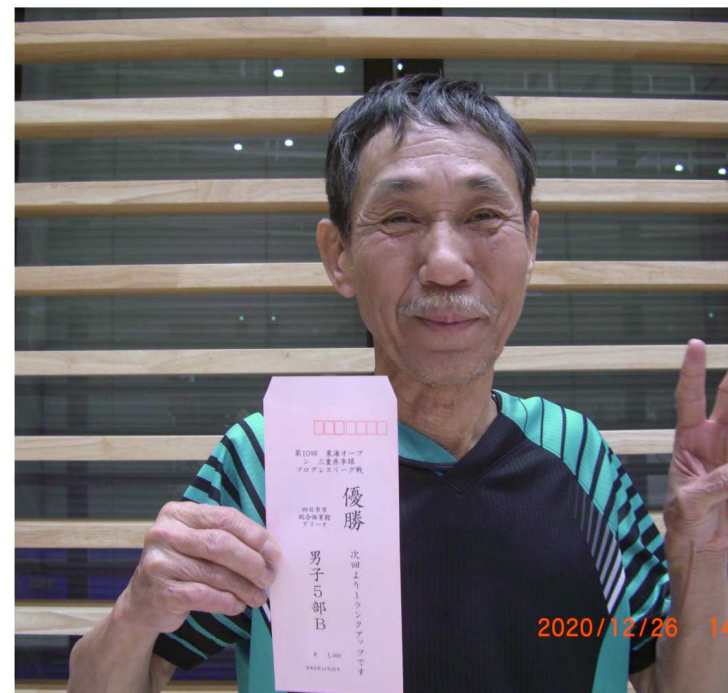 第10回 東海オープ
ン 三重県卓球
プログレスリーグ戦
優勝
四日市市
総合体育館
アリーナ
次回より1ランクアップです
男子5部B
¥ 1,000
2020/12/26 14